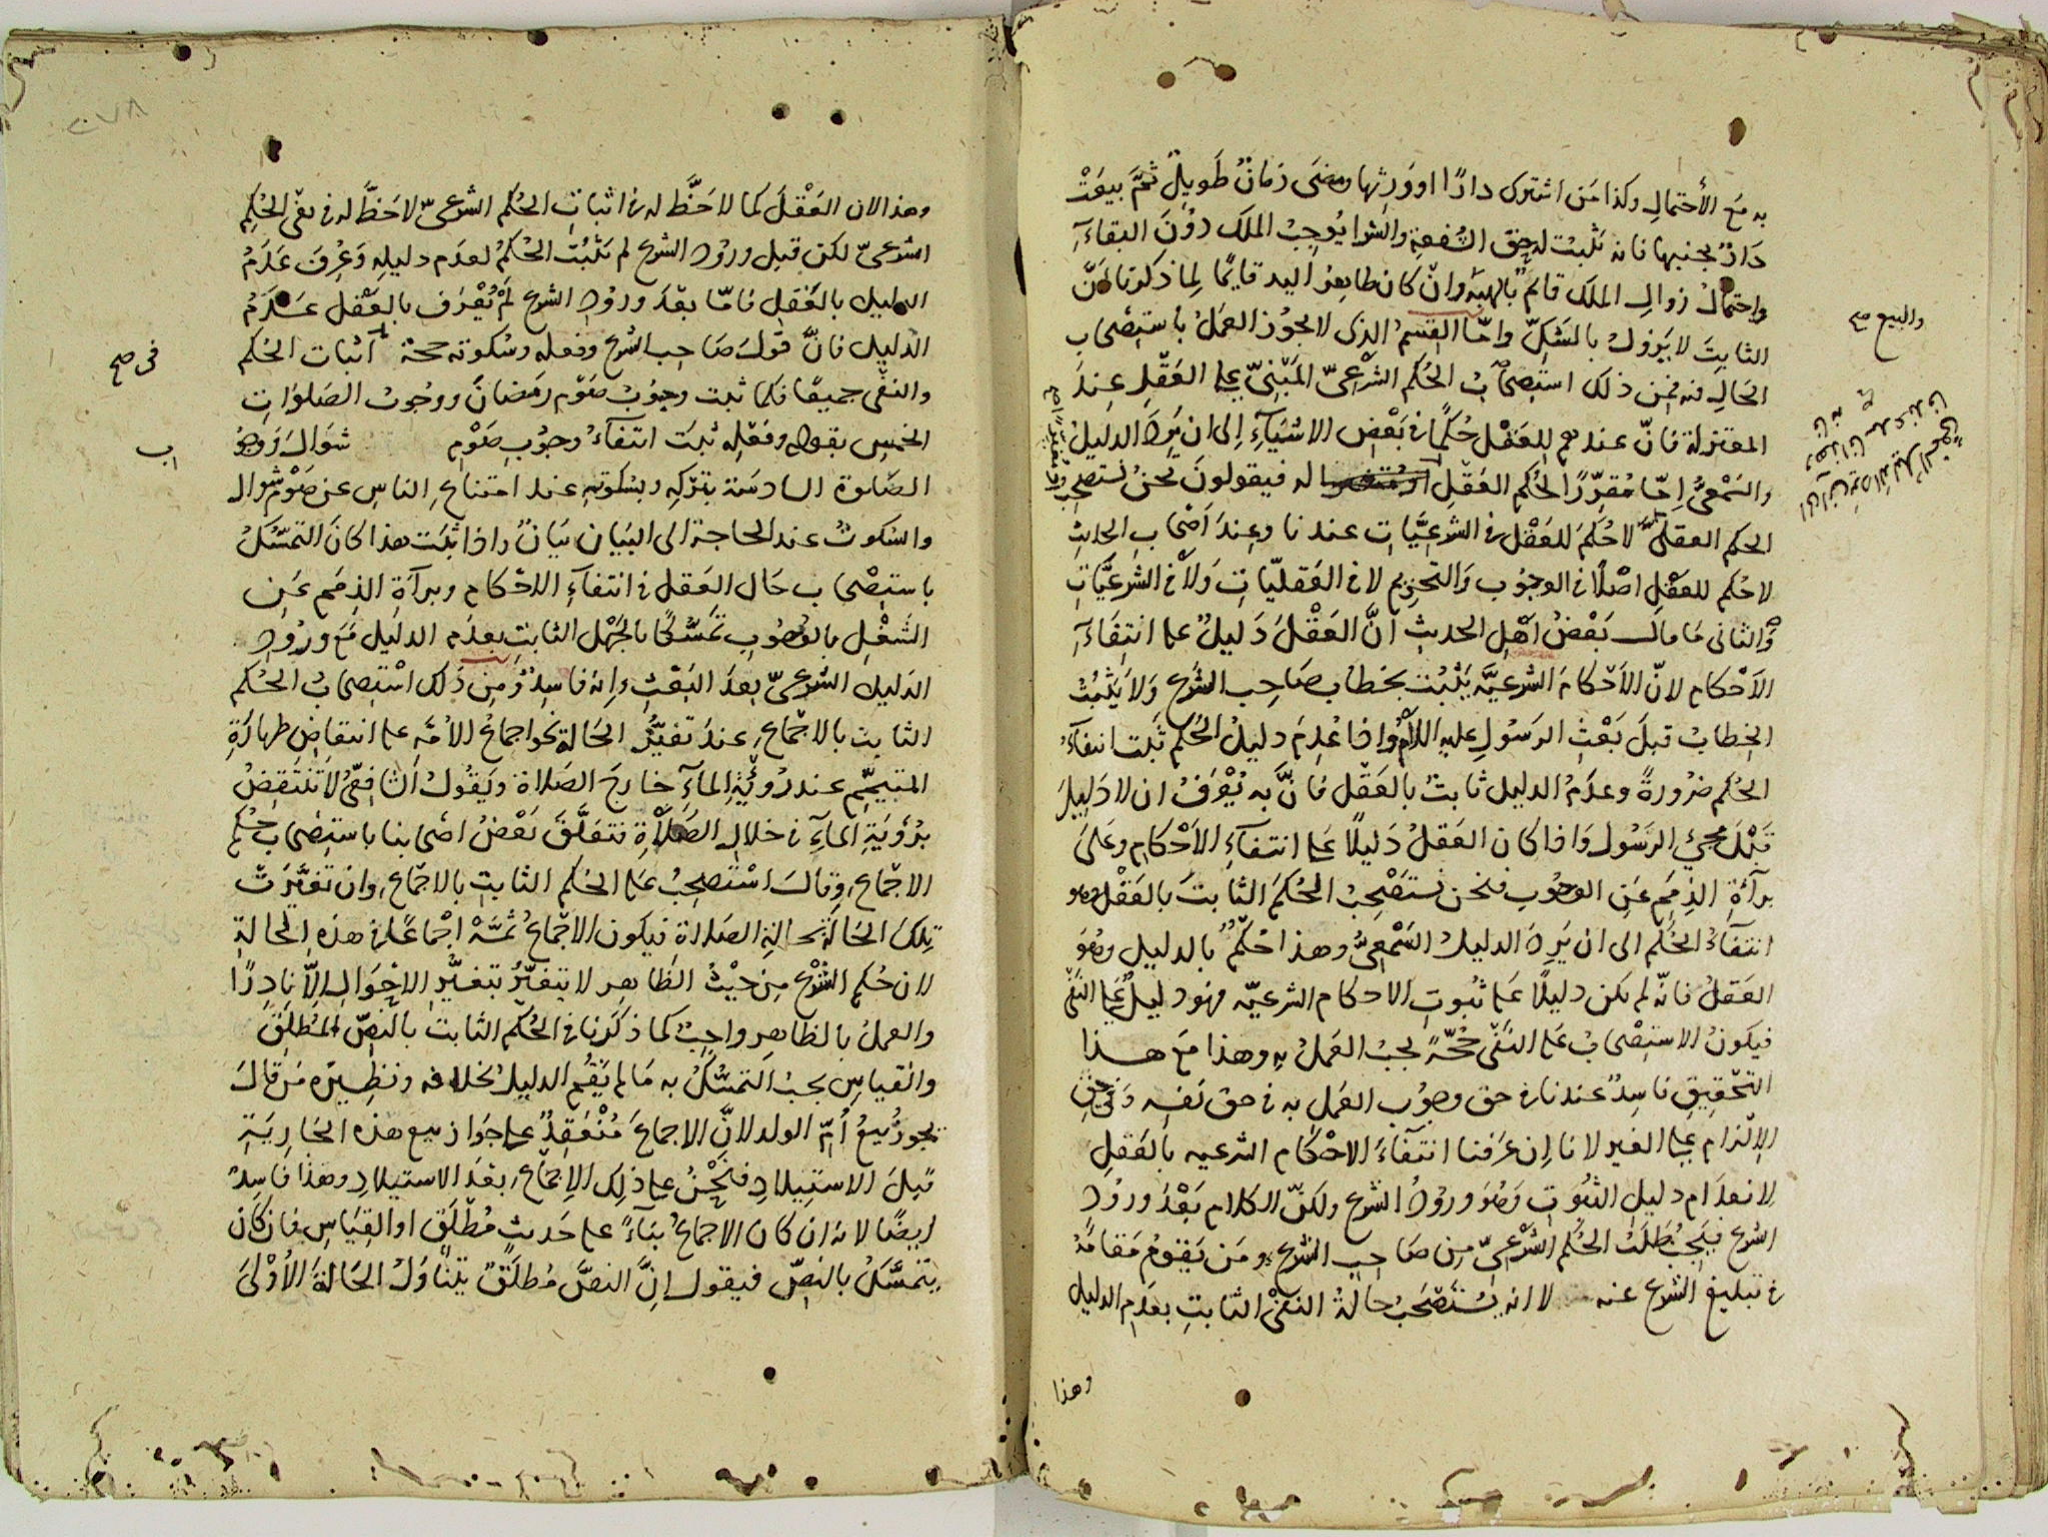 به مع الأحتمال وكذا من اشترى دارًا او ورثها ومضى زمانٌ طويلٌ ثمّ بيعَتْ
دارٌ بجنبها فانه تثبت له حق الشفعةِ والشرا يُوجبُ الملك دُونَ البقاءِ
واحتمالُ زوالِ الملك قائمٌ بالهبة وان كان ظاهر اليد قائمًا لِما ذكرنا انّ
والبيع صح
الثابتَ لا يَزولُ بالشكِّ وامّا القسمُ الذى لا يجوز العملُ باستصحابِ
الحَالِ فيه فمن ذلك استصحابُ الحُكم الشّرْعىّ المَبْنِىّ على العَقْلِ عِندَ
المعتزلة فانّ عندهم للعَقْل حُكمًا فى بَعْض الاشيَآءِ إلى ان يَرِدَ الدليلُ
والسّمْعىُّ اِمّا مُقرِّرًا لحُكم العَقْلِ له فيقولونَ نحنُ نستصحِبُ
الحكم العقلى لا حُكمَ للعَقْل فى الشرعيَّات عندنا وعِندَ اَصْحابِ الحديثِ
لا حُكم للعقْلِ اصْلًا فى الوجُوب وَالتحْرِيم لا فى العَقليّاتِ وَلَا فى الشرعيَّاتِ
وَالثانى مَا قالَ بَعْضُ اَهْلِ الحديثِ انَّ العَقْلَ دَليلٌ على انتِفَآءِ
الاَحْكام لانّ الاَحْكامَ الشرعيَّه يَثْبُت بخطابِ صَاحِب الشرع وَلا يَثْبُتُ
الخِطابُ قبلَ بَعْثِ الرسُولِ عليه السلام وَاذا عُدِمَ دليلُ الحُكم ثَبت انتفآءُ
الحُكم ضرُورةً وعدَمُ الدليل ثابتٌ بالعَقْل فانَّ به يُعْرَفُ ان لا دَليلَ
قَبْلَ مجئِ الرسُول وَاذا كان العَقلُ دَليلًا على انتفآءِ الاَحْكامِ وعَلىَ
برآءةِ الذِمَمِ عَنِ الوجُوبِ فنحن نستَصْحِبُ الحُكمَ الثابتَ بالعَقْل وهو
انتفآءُ الحُكْم الى ان يَرِدَ الدليلُ السّمْعىُّ وهذا حُكْمٌ بالدليلِ وهُوَ
العَقلُ فانّه لم يكن دليلًا على ثبوتِ الاحكام الشرعيّه فهُو دليلٌ على النَفْى
فيكونُ الاستِصْحابُ على النَفْى حُجّةً يجبُ العَملُ بهِ وهذا مَعَ هــذا
التحْقيقِ فاسِدٌ عندنا فى حق وجوُبِ العَملِ به فى حق نَفسِه وَفى حقِّ
الاِلْزام على الغير لانا اِن عَرَفنا انتفآءَ الاحْكام الشرعيه بالعَقلِ
لانعدَام دليلِ الثبُوتِ وَهُوَ ورُودُ الشرع ولكنّ الكلام بَعْدَ ورُودِ
الشرع فيَجِبُ طَلَبُ الحُكم الشرْعىّ مِن صَاحِب الشرع ومَن يَقومُ مَقامَهُ
فى تبليغ الشرع عنه لا انه يُسْتَصْحَبُ حالةُ النَفْى الثابتِ بعدَم الدليل
وهذا
وهذا لان العَقْلَ كما لا حَظَّ له فى اثباتِ الحُكم الشرعىّ لا حَظَّ له فى نفى الحُكمِ
الشرعىّ لكن قبل ورُودِ الشرع لم يَثبُتِ الحُكمُ لعدَم دليلِه وَعُرِفَ عَدَمُ
الدليل بالعَقلِ فامّا بعْدَ ورودِ الشرع لَمْ يُعْرَف بالعَقْلِ عَــدَمُ
الدّليل فانَّ قَولَ صَاحِب الشرع وفعله وسُكوته حجة اثبات الحُكم
فى صح
والنفْى جميعًا فكما ثبت وجوُبُ صَوْم رمَضانَ ووجُوبُ الصَلوَاتِ
الخمسِ بقوله وفعْلِهِ ثبتَ انتفآءُ وجوُبِ صَوْمِ شوّالَ وَوجو
اب
الصّلوة السادسَة بتركِهِ وبسُكوتهِ عند امتناعِ الناسِ عن صَوْم شوال
والسُكوتُ عند الحاجة الى البَيان بَيانٌ واذا ثبَت هذا كانَ التمسّكُ
باستِصْحابِ حَال العَقل فى انتفآءِ الاحْكام وبرآءةِ الذِمَم عَنِ
الشَغْلِ بالوجُوبِ تَمَسُّكًا بالجَهْل الثابتِ بعدَم الدليل مَعَ ورُودِ
الدليل الشرعىّ بعدَ البَعْثِ وانه فاسِدٌ ومن ذلك اسْتِصْحابُ الحُكم
الثابت بالاجماعِ عندَ تغيُّر الحَالة نحو اجماعُ الامّه على انتقاضِ طهارَةِ
المتيمِّم عند رُؤْيَةِ الماءِ خارجَ الصَلاة ويَقُولُ الشافعىُّ لا تَنْتَقِضُ
برُؤيَةِ الماءِ فى خلالِ الصَلاةِ فتعَلَّقَ بَعْضُ اصْحابنا باستِصْحابِ حُكمِ
الاجماعِ وقالَ استَصحِبُ على الحُكم الثابتِ بالاجماعِ وان تغيَّرَتْ
تِلكَ الحَالةُ بحالةِ الصَلاة فيكون الاجماعُ ثَمَّهْ اِجْماعًا فى هذهِ الحالةِ
لان حُكم الشرْع مِن حَيْثُ الظاهِر لا يتغيَّرُ بتغيُّرِ الاحْوَالِ اِلّا نادِرًا
والعملُ بالظاهِر واجِبٌ كما ذكَرنا فى الحُكم الثابت بالنَصّ المُطلَقِ
والقياسِ يجبُ التمسُّكُ به مَا لم يَقُم الدليلُ بخلافه ونظِيرُه مَن قالَ
يجوزُ بيعُ اُمّ الولد لانَّ الاجماعَ مُنْعَقِدٌ على جَواز بيع هذه الجَارِيَةِ
قبلَ الاستِيلادِ فنَحْنُ على ذلِك الاِجْماعِ بعْدَ الاستيلادِ وهذا فاسِدٌ
ايضًا لانه ان كان الاجماعُ بنآءً على حَديثٍ مُطْلَقٍ او القِيَاسِ فان كان
يتمسَّكُ بالنصّ فيقول اِنَّ النصَّ مُطلَقٌ يتنَاوَلُ الحَالةَ الأُوْلىَ